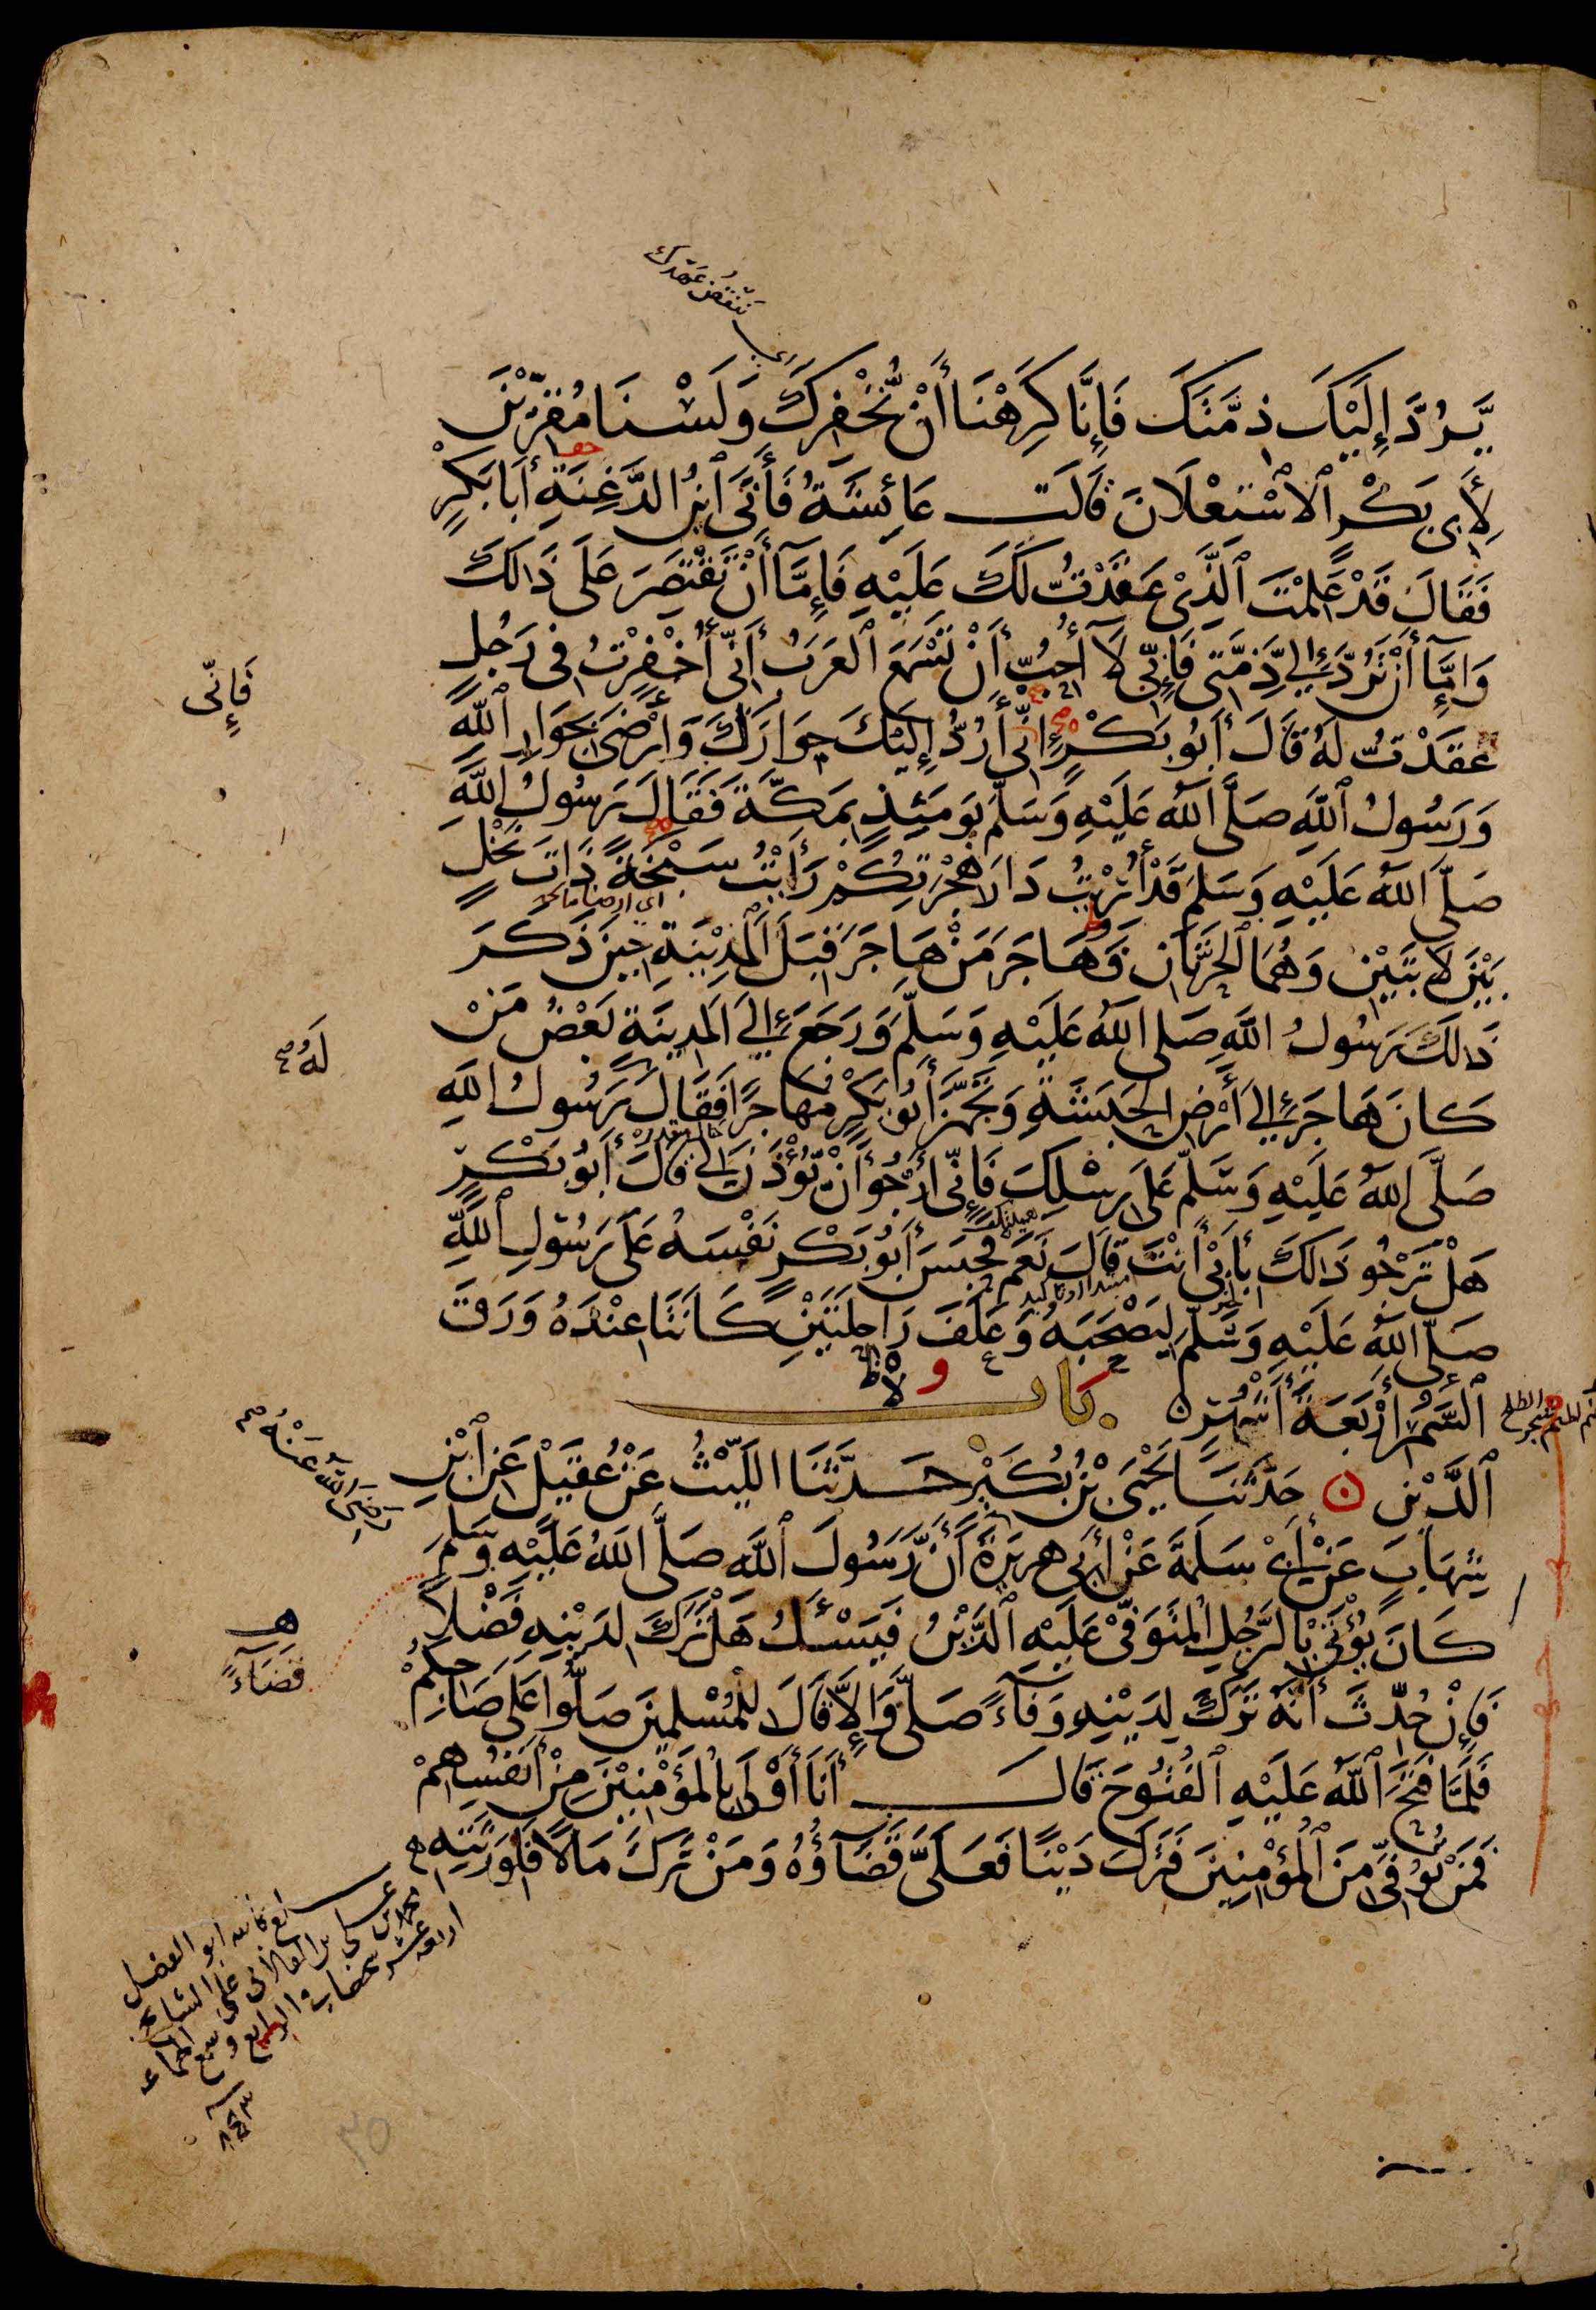 ننقض عهدك
يَّرُدَّ إِلَيْكَ ذِمَّتَكَ فَإِنَّا كَرِهْنَا أَنْ نُّخْفِرَكَ وَلَسْنَا مُقِرِّيْنَ
لِأَبِي بَكْرٍ ٱلِاسْتِعْلَانَ قَالَتْ عَائِشَةُ فَأَتَى ابْنُ الدَّغِنَةِ أَبَا بَكْرٍ
فَقَالَ قَدْ عَلِمْتَ ٱلَّذِيْ عَقَدْتُّ لَكَ عَلَيْهِ فَإِمَّا أَنْ تَقْتَصِرَ عَلَى ذَالِكَ
وَإِمَّا أَنْ تَرُدَّ إِلَيَّ ذِمَّتِي فَإِنِّي لَا أُحِبُّ أَنْ تَسْمَعَ ٱلْعَرَبُ أَنِّي أُخْفِرْتُ فِي رَجُلٍ
فَإِنِّي
عَقَدْتُّ لَهُ قَالَ أَبُو بَكْرٍ إِنِّي أَرُدُّ إِلَيْكَ جِوَارَكَ وَأَرْضَى بِجِوَارِ ٱللَّهِ
وَرَسُولُ ٱللَّهِ صَلَّى ٱللَّهُ عَلَيْهِ وَسَلَّمَ يَوْمَئِذٍ بِمَكَّةَ فَقَالَ رَسُولُ اللَّهِ
صَلَّى اللَّهُ عَلَيْهِ وَسَلَّمَ قَدْ أُرِيْتُ دَارَ هِجْرَتِكُمْ رَأَيْتُ سَبْخَةً ذَاتَ نَخْلٍ
اي ارضا مالحة
بَيْنَ لَابَتَيْنِ وَهُمَا ٱلْحَرَّتَانِ وَهَاجَرَ مَنْ هَاجَرَ قِبَلَ ٱلْمَدِيْنَةِ حِيْنَ ذَكَرَ
ذَالِكَ رَسُولُ اللَّهِ صَلَى اللَّهُ عَلَيْهِ وَسَلَّمَ وَرَجَعَ إِلَى الْمَدِينَةِ بَعْضُ مَنْ
لَهُ
كَانَ هَاجَرَ إِلَى أَرْضِ الْحَبَشَةِ وَتَجَهَّزَ أَبُو بَكْرٍ مُهَاجِرًا فَقَالَ رَسُولُ اللَّهِ
حال مقدرة
صَلَّى اللَّهُ عَلَيْهِ وَسَلَّمَ عَلَى رِسْلِكَ فَإِنِّي أَرْجُو أَنْ يُّؤْذَنَ لِي قَالَ أَبُو بَكْرٍ
هَلْ تَرْجُو ذَالِكَ بِأَبِيْ أَنْتَ قَالَ نَعَمْ فَحَبَسَ أَبُو بَكْرٍ نَفْسَهُ عَلَى رَسُولِ ٱللَّهِ
مبتدا او تاكيد
صَلَّى اللَّهُ عَلَيْهِ وَسَلَّمَ لِيَصْحَبَهُ وَعَلَفَ رَاحِلَتَيْنِ كَانَتَا عِنْدَهُ وَرَقَ
ٱلسَّمُرِ أَرْبَعَةَ أَشْهُرٍ ن بَاب
ٱلدَّيْنِ ن حَدَّثَنَا يَحْيَى بْنُ بُكَيْرٍ حَدَّثَنَا اللَّيْثُ عَنْ عُقَيْلٍ عَنِ ٱبْنِ
رَضِيَ اللَّهُ عَنْهُ
شِهَابٍ عَنْ أَبِيْ سَلَمَةَ عَنْ أَبِي هُرَيْرَةَ أَنَّ رَسُولَ ٱللَّهِ صَلَّى اللَّهُ عَلَيْهِ وَسَلَّمَ
كَانَ يُؤْتَى بِالرَّجُلِ الْمُتَوَفَّى عَلَيْهِ ٱلدَّيْنُ فَيَسْئَلُ هَلْ تَرَكَ لِدَيْنِهِ فَضْلًا
قَضَآءً
فَإِنْ حُدِّثَ أَنَّهُ تَرَكَ لِدَيْنِهِ وَفَآءً صَلَّى وَإِلَّا قَالَ لِلْمُسْلِمِينَ صَلُّوا عَلَى صَاحِبِكُمْ
فَلَمَّا فَتَحَ ٱللَّهُ عَلَيْهِ ٱلْفُتُوحَ قَالَ أَنَا أَوْلَى بِالْمُؤْمِنِيْنَ مِنْ أَنْفُسِهِمْ
فَمَنْ تُوُفِّيَ مِنَ ٱلْمُؤْمِنِينَ فَتَرَكَ دَيْنًا فَعَلَيَّ قَضَاؤُهُ وَمَنْ تَرَكَ مَالًا فَلِوَرَثَتِهِ
٣٥